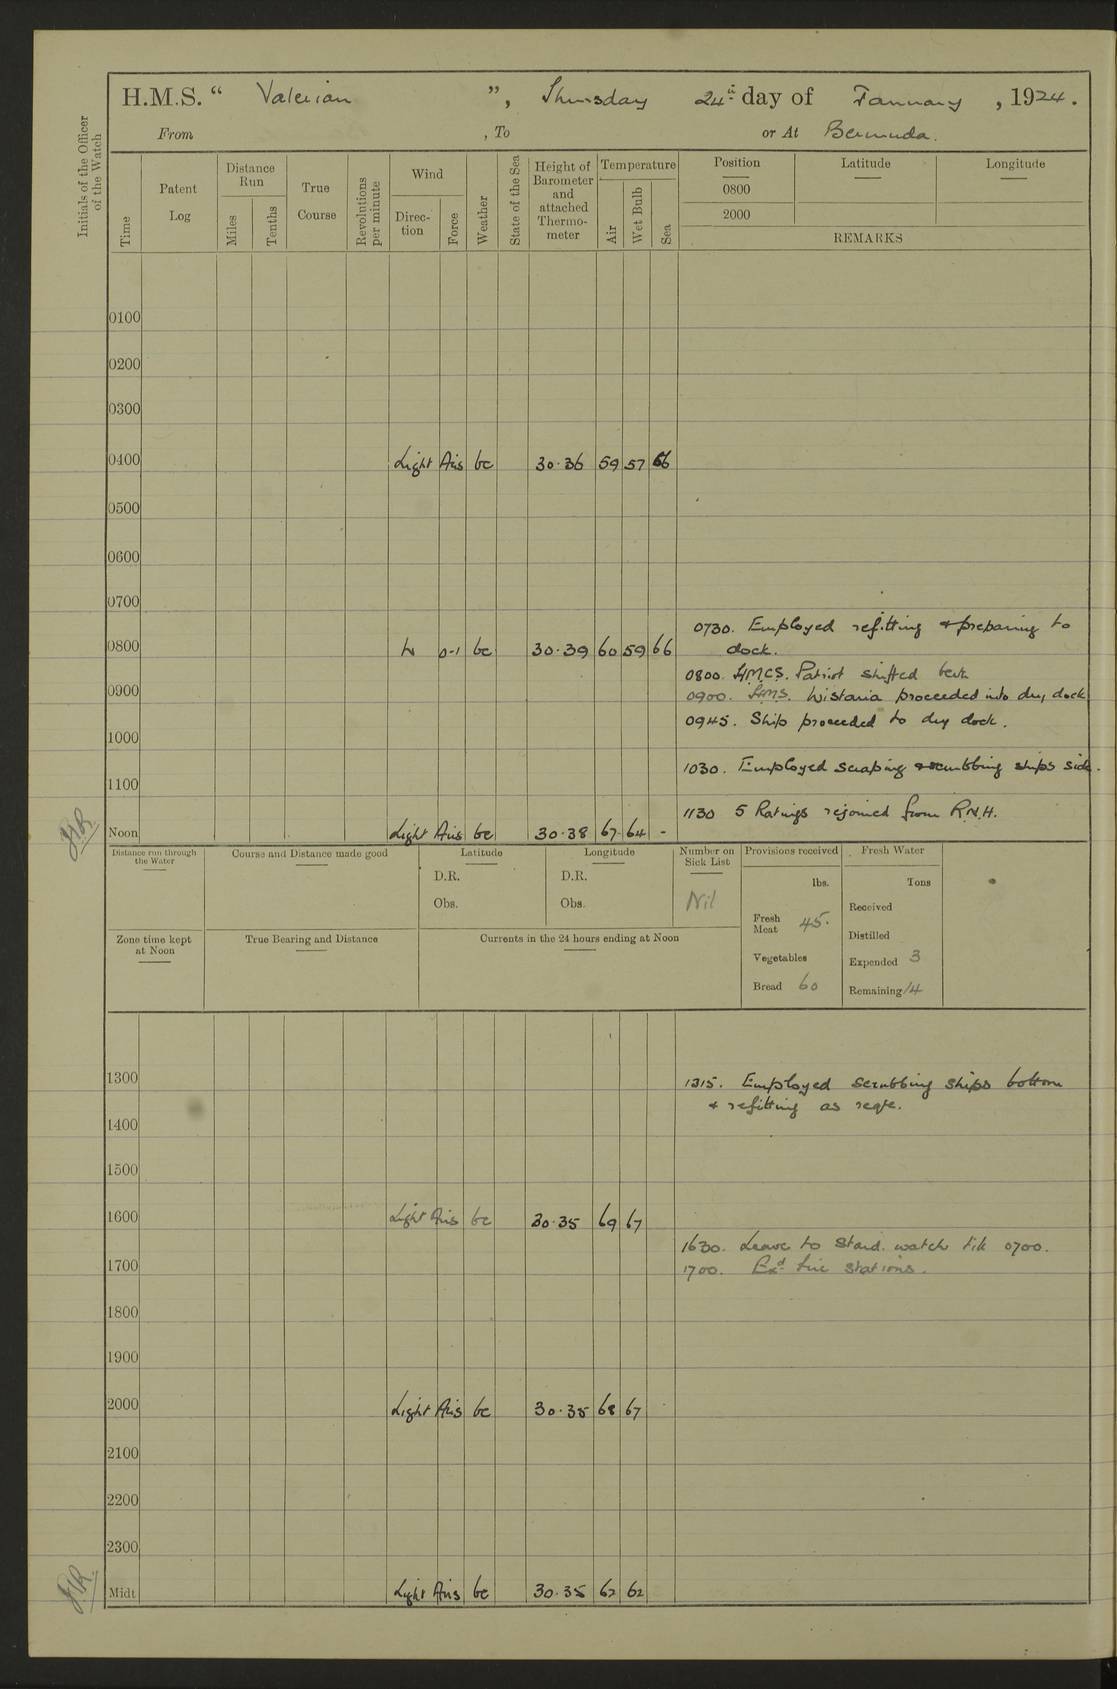 H.M.S. “ Valerian ”, Thursday 24th day of January, 1924.
From , To or At Bermuda.
Initials of the Officer of the Watch
Time
Patent Log
Distance Run
Miles
Tenths
True Course
Revolutions per minute
Wind
Direction
Force
Weather
State of the Sea
Height of Barometer and attached Thermometer
Temperature
Air
Wet Bulb
Sea
Position Latitude Longitude
0800
2000
REMARKS
0100
0200
0300
0400 Light Airs bc 30.36 59 57 66
0500
0600
0700
0730. Employed refitting & preparing to
dock.
0800 W 0-1 bc 30.39 60 59 66
0800. H.M.C.S. Patriot shifted berth
0900
0900. H.M.S. Wistaria proceeded into dry dock
0945. Ship proceeded to dry dock.
1000
1030. Employed scraping & scrubbing ships side.
1100
1130 5 Ratings rejoined from R.N.H.
Noon Light Airs bc 30.38 67 64 -
Distance run through the Water
Course and Distance made good
Latitude
D.R.
Obs.
Longitude
D.R.
Obs.
Number on Sick List
Nil
Provisions received
lbs.
Fresh Meat 45.
Vegetables
Bread 60
Fresh Water
Tons
Received
Distilled
Expended 3
Remaining 14
Zone time kept at Noon
True Bearing and Distance
Currents in the 24 hours ending at Noon
1300
1315. Employed scrubbing ships bottom
& refitting as reqte.
1400
1500
1600 Light Airs bc 30.35 69 67
1630. Leave to Starbd. watch till 0700.
1700
1700. Exd fire stations.
1800
1900
2000 Light Airs bc 30.35 68 67
2100
2200
2300
Midt Light Airs bc 30.35 62